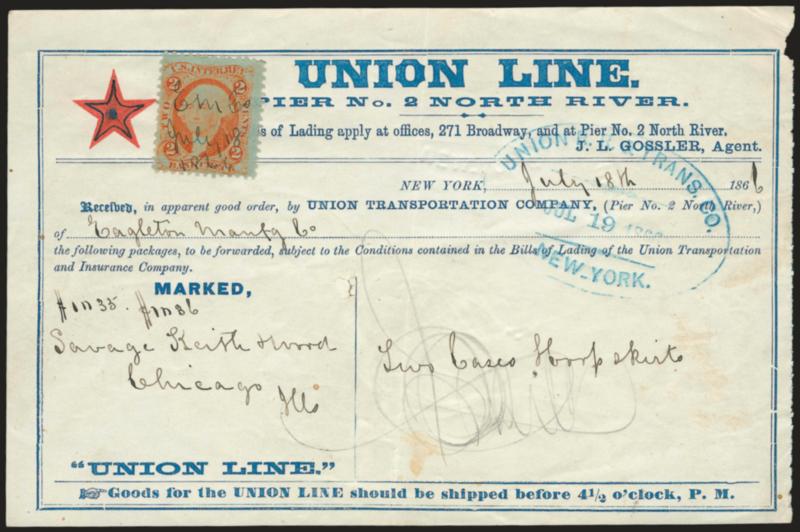 UNION LINE,
PIER No. 2 NORTH RIVER.
U.S. INTER
2 2
TWO CENTS
July 18
BANK
s of Lading apply at offices, 271 Broadway, and at Pier No. 2 North River.
J. L. GOSSLER, Agent.
UNION TRANS. CO.
JUL 19
NEW-YORK.
NEW YORK, July 18th 1866
Received, in apparent good order, by UNION TRANSPORTATION COMPANY, (Pier No. 2 North River,)
of Eagleton Manfg Co
the following packages, to be forwarded, subject to the Conditions contained in the Bills of Lading of the Union Transportation
and Insurance Company.
MARKED,
Savage Keith & Wood
Chicago
Ills
Two Cases Hoop skirts
"UNION LINE."
☞Goods for the UNION LINE should be shipped before 4½ o'clock, P. M.